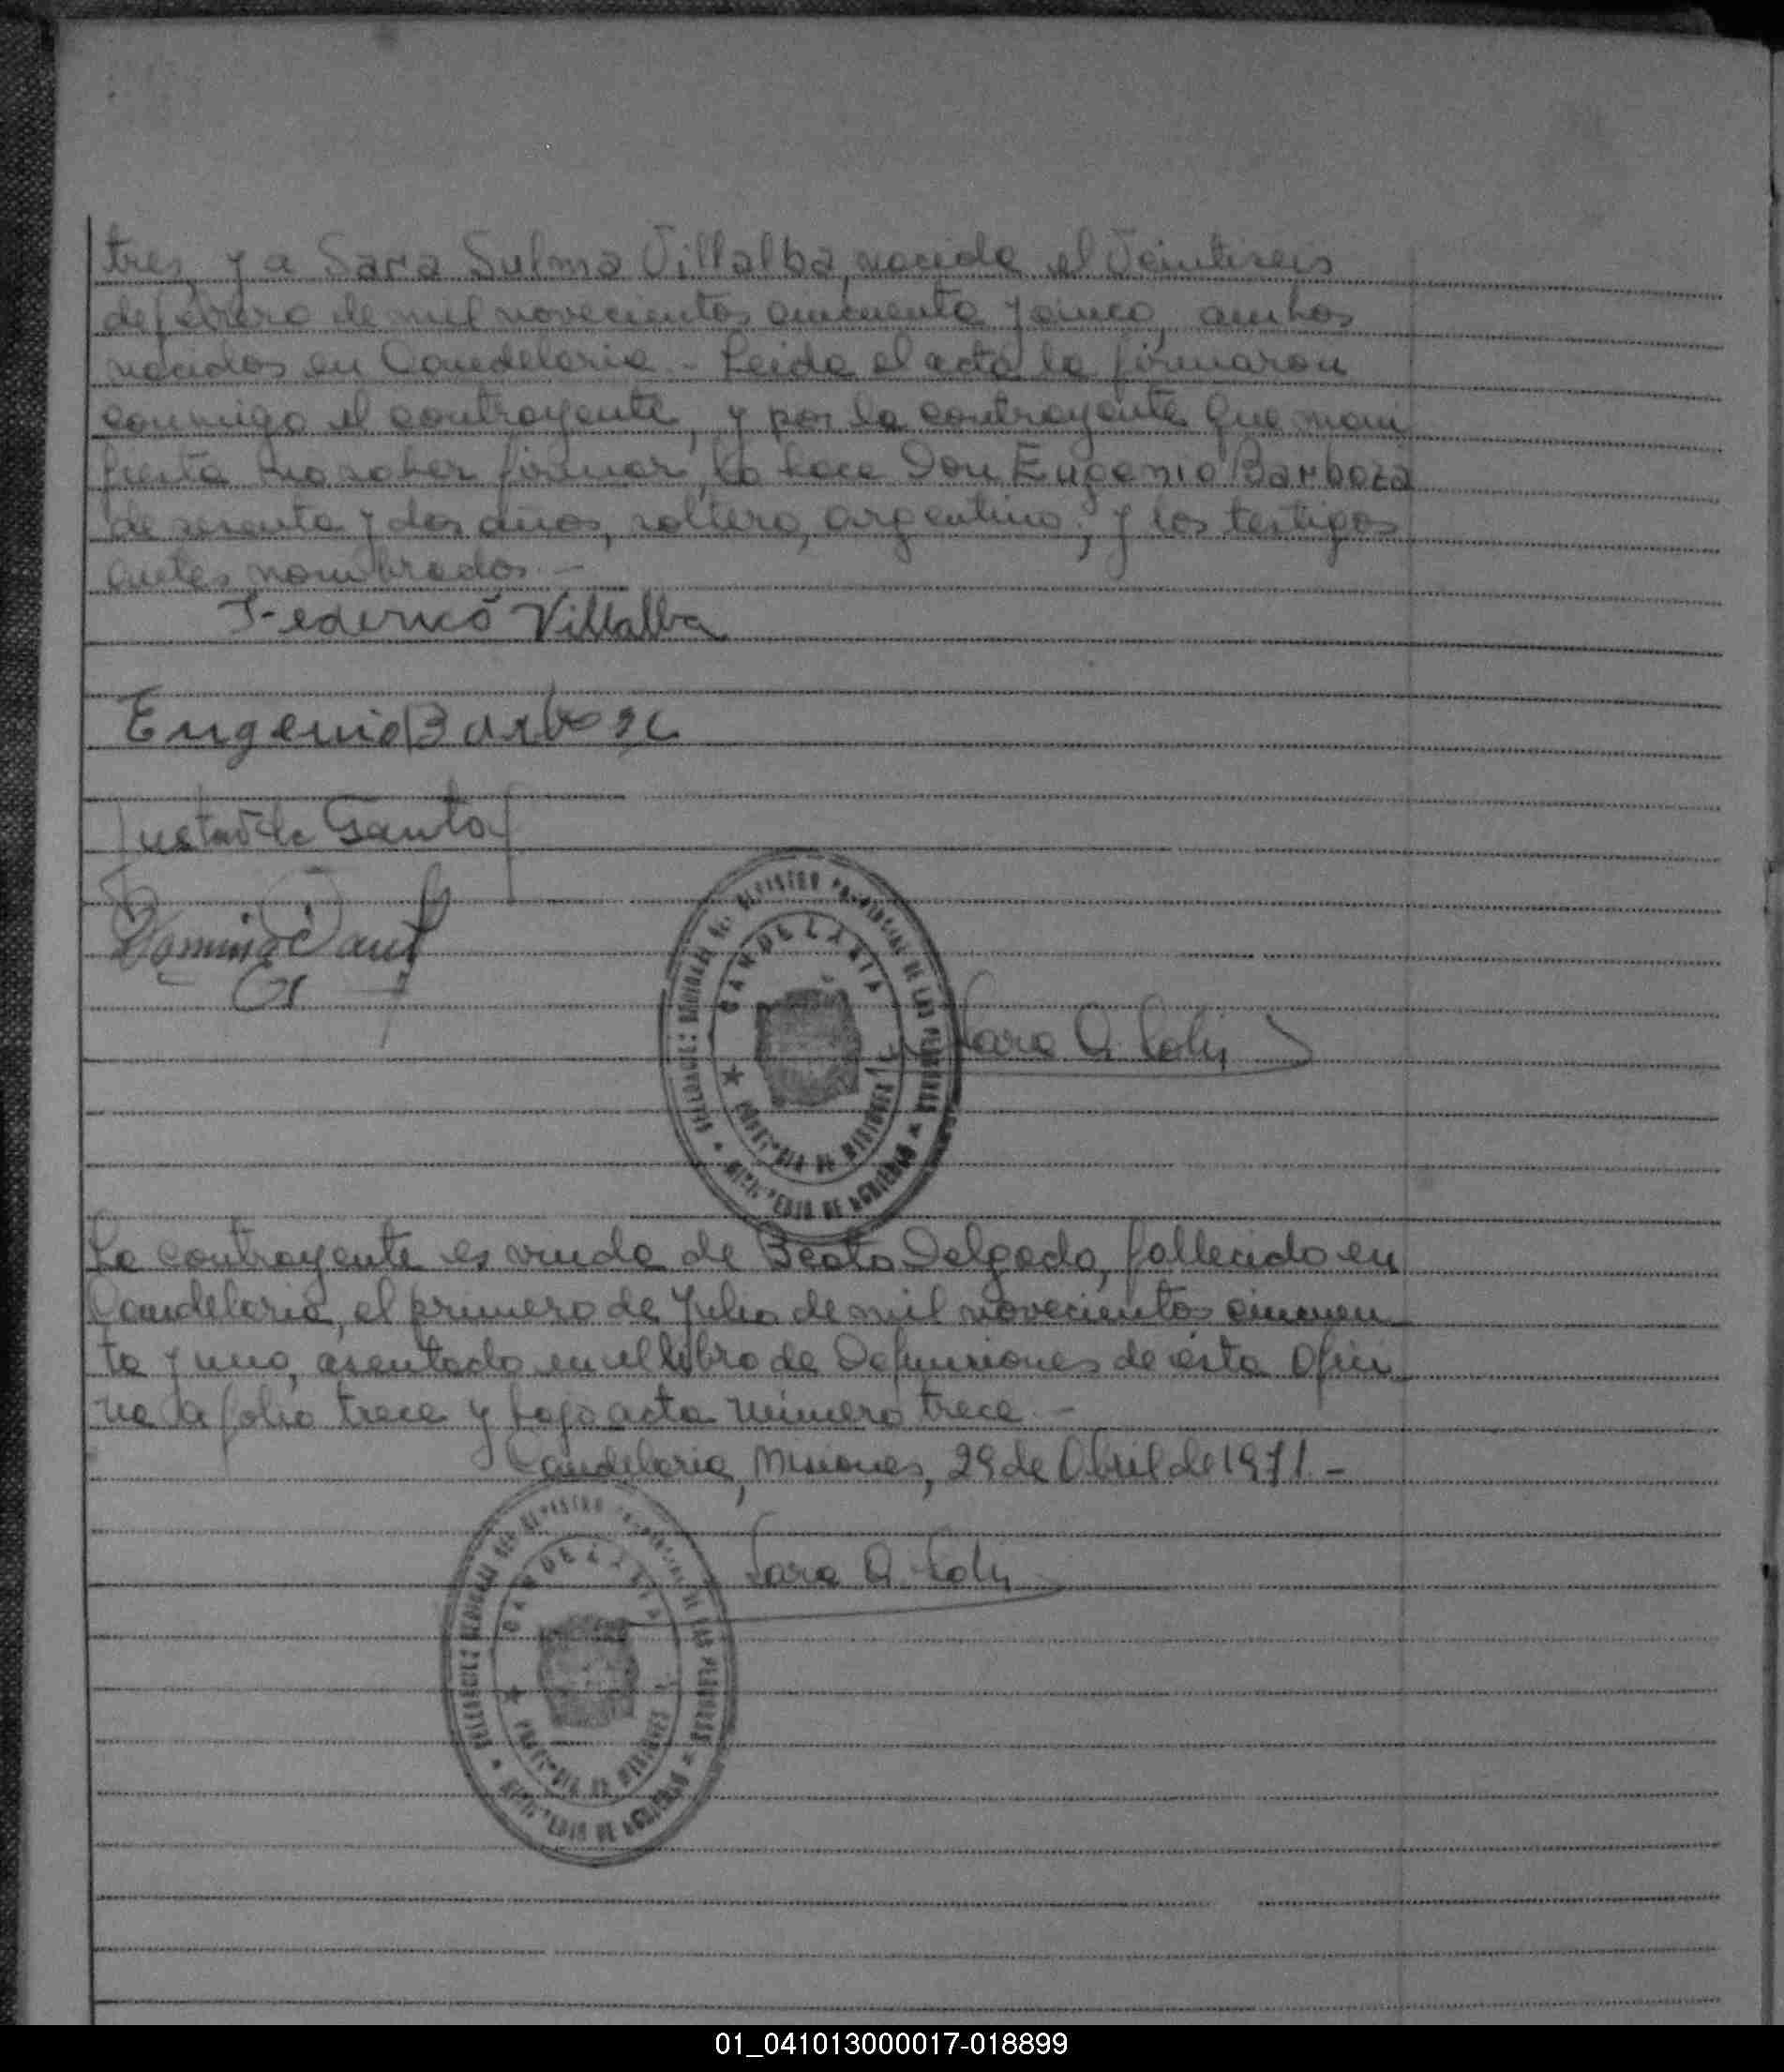 tres, y a Sara Sulma Villalba, nacida el Veintiseis
de febrero de mil novecientos cincuenta y cinco, ambos
nacidos en Candelaria.- Leida el acta la firmaron
conmigo el contrayente, y por la contrayente que mani
fiesta no saber firmar, lo hace Don Eugenio Barboza
de sesenta y dos años, soltero, argentino; y los testigos
antes nombrados.-
Federico Villalba
Eugenio Barboza
CANDELARIA
PROVINCIA DE MISIONES
MINISTERIO DE GOBIERNO
Sara A.
La contrayente es viuda de Beato Delgado, fallecido en
Candelaria, el primero de Julio de mil novecientos cincuen
ta y uno, asentado en el libro de Defunciones de ésta Ofici
na a folio trece y bajo acta número trece.-
Candelaria, Misiones, 29 de Abril de 1971.-
Sara A.
CANDELARIA
PROVINCIA DE MISIONES
MINISTERIO DE GOBIERNO
01_041013000017-018899